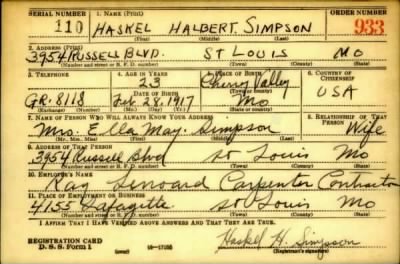 SERIAL NUMBER 1. NAME (Print) ORDER NUMBER
110 HASKEL HALBERT SIMPSON 933
(First) (Middle) (Last)
2. ADDRESS (Print)
3954 RUSSELL BLVD. ST LOUIS MO
(Number and street or R. F. D. number) (Town) (County) (State)
3. TELEPHONE 4. AGE IN YEARS 5. PLACE OF BIRTH 6. COUNTRY OF CITIZENSHIP
23 Cherry Valley
DATE OF BIRTH (Town or county)
GR. 8118 Feb. 28, 1917 Mo USA
(Exchange) (Number) (Mo.) (Day) (Yr.) (State or country)
7. NAME OF PERSON WHO WILL ALWAYS KNOW YOUR ADDRESS 8. RELATIONSHIP OF THAT PERSON
Mrs. Ella May Simpson Wife
(Mr., Mrs., Miss) (First) (Middle) (Last)
9. ADDRESS OF THAT PERSON
3954 Russell Blvd St Louis Mo
(Number and street or R. F. D. number) (Town) (County) (State)
10. EMPLOYER'S NAME
Ray Carpenter Contractor
11. PLACE OF EMPLOYMENT OR BUSINESS
4155 Lafayette St Louis Mo
(Number and street or R. F. D. number) (Town) (County) (State)
I AFFIRM THAT I HAVE VERIFIED ABOVE ANSWERS AND THAT THEY ARE TRUE.
REGISTRATION CARD
D. S. S. Form 1 (over) Haskel H. Simpson
(Registrant's signature)